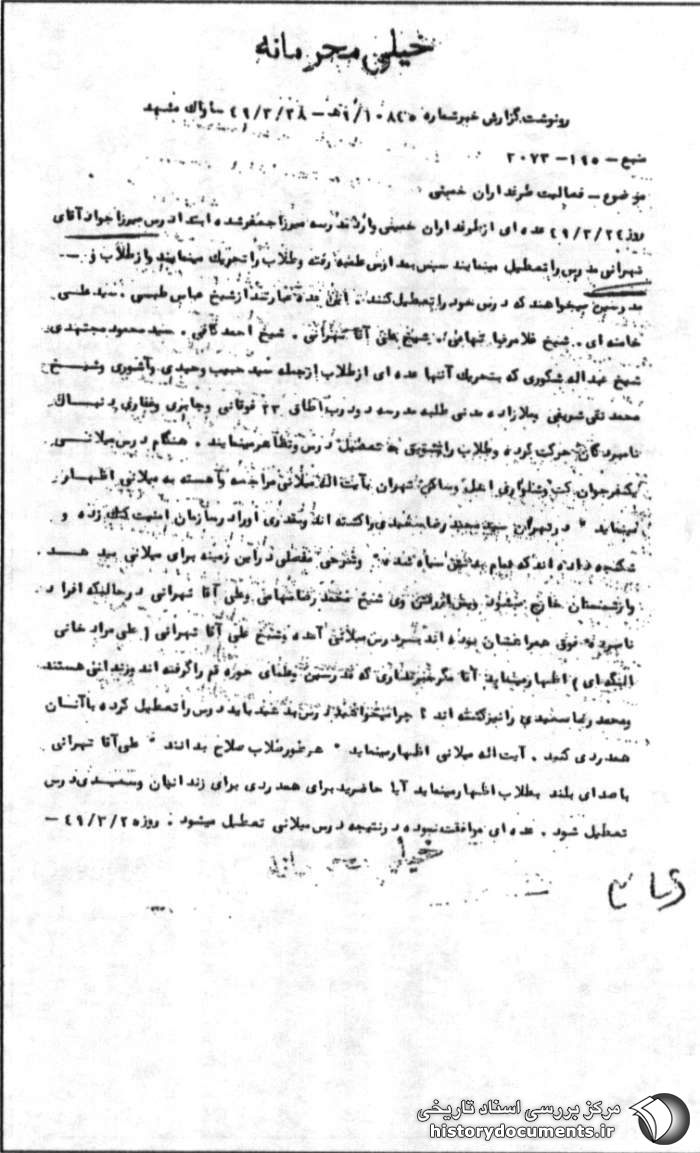 خیلی محرمانه
رونوشت گزارش خبر شماره ۹/۱۰۸۴۵ ه‍ – ۴۹/۳/۲۸ ساواك مشهد
منبع – ۱۹۵ – ۲۰۷۳
موضوع – فعالیت طرفداران خمینی
روز ۴۹/۳/۲۴ عده ای از طرفداران خمینی وارد مدرسه میرزا جعفر شده ابتدا درس میرزا جواد آقای
تهرانی مدرس را تعطیل مینمایند سپس بمدارس طلبه رفته وطلاب را تحریك مینمایند واز طلاب و –
مدرسین میخواهند که درس خود را تعطیل کنند . این عده عبارتند از شیخ عباس طبسی . سید علی
خامنه ای . شیخ غلامرضا تهامی . شیخ علی آقا تهرانی . شیخ احمد کافی . سید محمود مجتهدی
شیخ عبداله شکوری که بتحریك آنها عده ای از طلاب ازجمله سید حبیب وحیدی وآشوری وشیخ
محمد تقی شریفی ملازاده مدنی طلبه مدرسه دودرب اطاق ۲۳ فوقانی وجابری وغفاری دنبال
نامبردگان حرکت کرده وطلاب را تشویق به تعطیل درس وتظاهر مینمایند . هنگام درس میلانی
یکنفر جوان کت وشلواری اهل وساکن تهران بآیت اله میلانی مراجعه وآهسته به میلانی اظهار
مینماید " در تهران سید محمد رضا سعیدی را کشته اند وبقدری اورا در سازمان امنیت کتك زده و
شکنجه داده اند که تمام بدنش سیاه شده " وشرحی مفصلی در این زمینه برای میلانی میدهد .
واز شبستان خارج میشود وپس از رفتن وی شیخ محمد رضا مهامی وعلی آقا تهرانی در حالیکه افراد
نامبرده فوق همراهشان بوده اند بسر درس میلانی آمده وشیخ علی آقا تهرانی ( علی مراد خانی
النگه ای ) اظهار مینماید آقا مگر خبر نداری که مدرسین وعلمای حوزه قم را گرفته اند وزندانی هستند
ومحمد رضا سعیدی را نیز کشته اند ؟ چرا میخواهید درس بدهید باید درس را تعطیل کرده با آنان
همدردی کنید . آیت اله میلانی اظهار مینماید " هر طور طلاب صلاح بدانند " علی آقا تهرانی
با صدای بلند بطلاب اظهار مینماید آیا حاضرید برای همدردی برای زندانیان وسعیدی درس
تعطیل شود . عده ای موافقت نموده در نتیجه درس میلانی تعطیل میشود . روز ۴۹/۳/۲۵ –
خیلی
مرکز بررسی اسناد تاریخی
historydocuments.ir